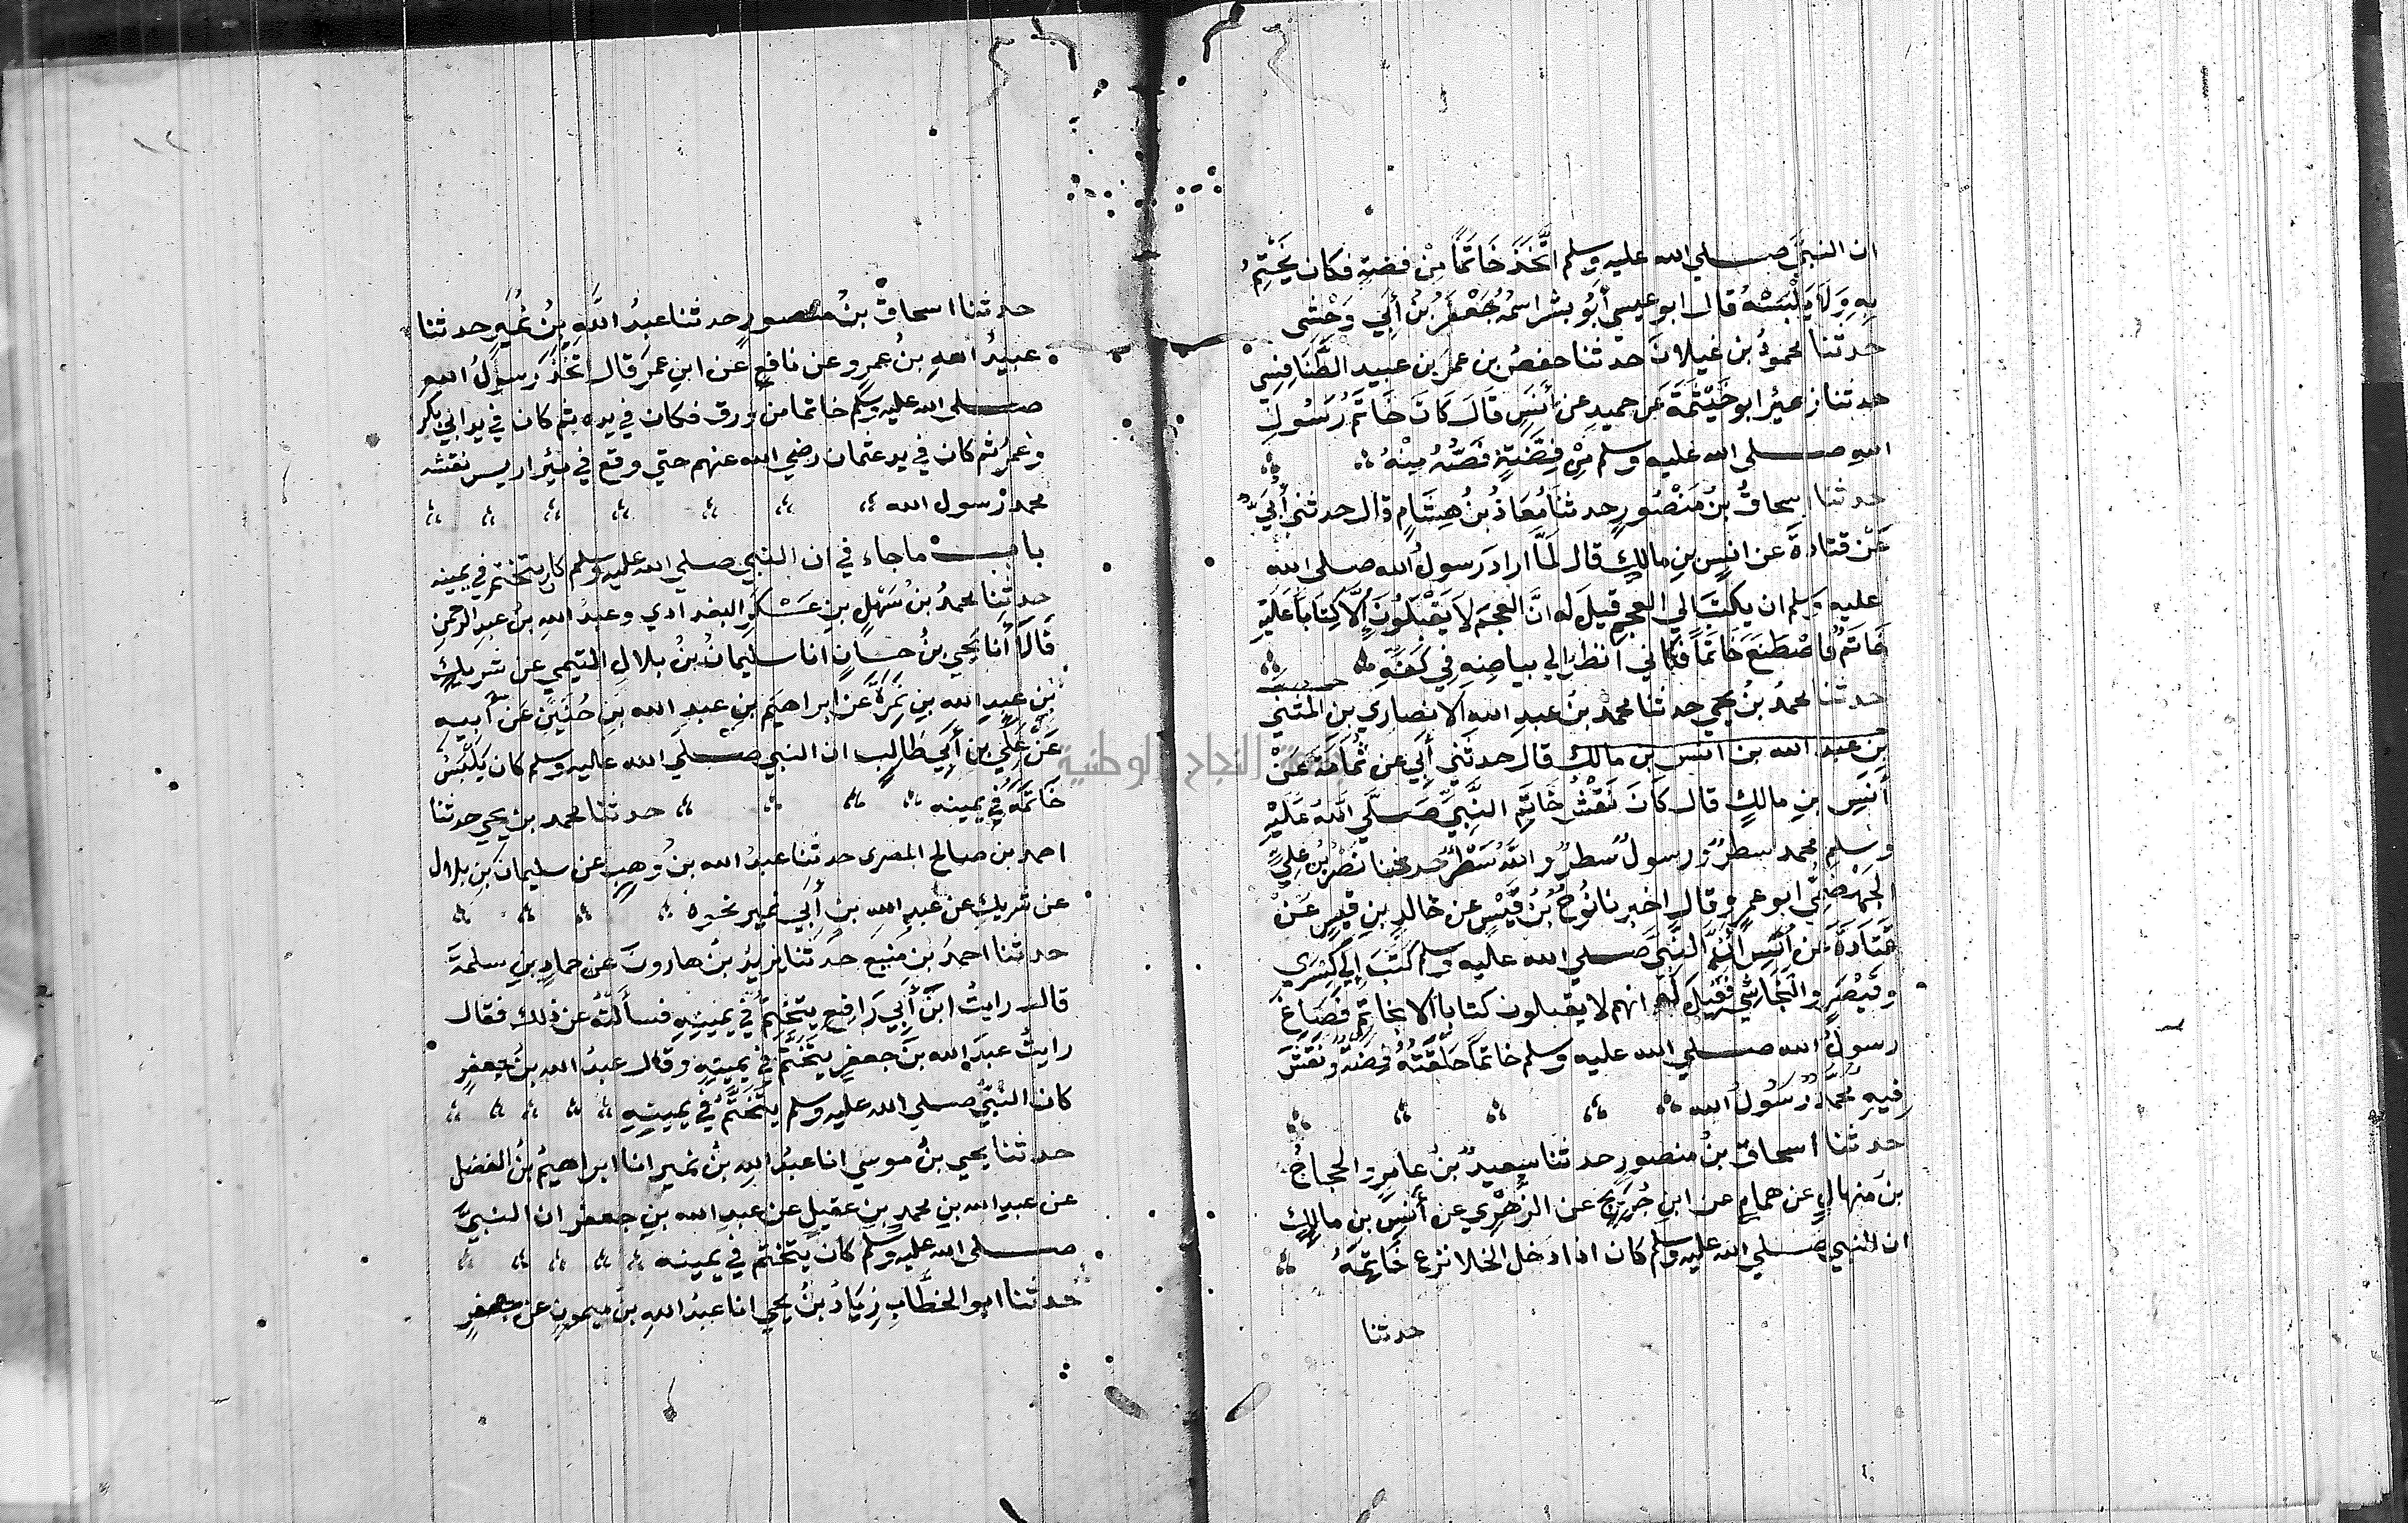 ان النبيَّ صلي الله عليه وسلم اتَّخَذَ خَاتَمًا مِنْ فضةٍ فكان يَخْتِمُ
بِهِ وَلَا يَلْبَسُهُ قال ابو عيسي أَبُو بشر اسمُهُ جَعْفَرُ بُن أَبِي وَحْشِي
حدثنا محمودُ بن غيلانَ حدثنا حفصُ بن عمرَ بن عبيد الطَّنَافِسِي
حدثنا زهيرُ ابو خَيْثَمَةَ عن حميدٍ عن أَنَسٍ قَالَ كَانَ خَاتَمُ رَسُولِ
اللهِ صلي الله عليه وسلم مِنْ فِضَّةٍ فَصُّهُ مِنْهُ
حدثنا اسحاقُ بنُ مَنْصُورٍ حدثنا مُعَاذُ بنُ هِشَامٍ قال حدثني أَبِي
عَنْ قتادةَ عن انسِ بنِ مالكٍ قال لَمَّا ارادَ رسولُ الله صلي الله
عليه وسلم ان يكتبَ الي العجمِ قيلَ له انَّ العجمَ لَا يَقْبَلُونَ إِلَّا كِتَابًا عَلَيْهِ
خَاتَمٌ فَاصْطَنَعَ خَاتَمًا فكاني انظرُ الي بياضِهِ فِي كَفِّهِ
حدثنا محمدُ بنُ يحيي حدثنا محمدُ بنُ عبدِ اللهِ الانصاري بنِ المثني
بن عبد الله بن انس بن مالك قال حدثَني أَبِي عن ثُمَامَةَ عَنْ
أَنَسِ بنِ مالكٍ قال كَانَ نَقْشُ خَاتَمِ النَّبِيِّ صَلَّي اللهُ عَلَيْهِ
وسلم محمد سطرٌ ورسولُ سطرٌ واللهُ سَطْرٌ حدثنا نصرُ بنُ علي
الجَهْضَمِيُّ ابو عمرٍو قال اخبرنا نُوحُ بْنُ قَيْسٍ عن خالدِ بنِ قيسٍ عَنْ
قَتَادَةَ عَن أَنَسٍ أَنَّ النبيَّ صلي الله عليه وسلم كَتَبَ إِلي كِسْرَي
وقَيْصَرَ والنَّجَاشِيِّ فقيلَ لَهُ انهم لا يقبلون كتابًا الا بخاتَمٍ فَصَاغَ
رسولُ الله صلي الله عليه وسلم خاتمًا حَلْقَتُهُ فِضَّةٌ ونَقَشَ
فِيهِ مُحَمَّدٌ رَسُولُ الله
حدثنا اسحاقُ بنُ منصورٍ حدثنا سعيدُ بنُ عامرٍ والحجاجُ
بنُ منهالٍ عن همامٍ عن ابنِ جُرَيْجٍ عن الزُهْرِي عن أَنَسِ بنِ مالكٍ
ان النبي صلي الله عليه وسلم كان اذا دخل الخلا نزع خَاتِمَهُ
حدثنا
حدثنا اسحاقُ بنُ منصورٍ حدثنا عبدُ اللَّهِ بنُ نُمَيرٍ حدثنا
عبيدُ اللهِ بنُ عمرو عن نافعٍ عن ابنِ عمرَ قال اتخذَ رَسولُ اللهِ
صلي الله عليه وسلم خاتما من ورق فكان في يده ثم كان في يد ابي بكر
وعُمرُ ثم كان في يد عثمان رضي الله عنهم حتي وقع في بئر اريس نقشه
محمد رسول الله
باب ما جاء في ان النبي صلي الله عليه وسلم كان يتختم في يمينه
حدثنا محمدُ بنُ سَهْلِ بنِ عَسْكَرٍ البغدادي وعبدُ اللهِ بنُ عبدِ الرحمنِ
قَالَا أنا يحيي بنُ حسانٍ انا سليمانُ بنُ بلالٍ التيمي عن شريكِ
بن عبدِ اللهِ بنِ نَمِرَةَ عن ابراهيمَ بنِ عبدِ الله بنِ حُنَيْنٍ عَنْ أبيه
عَنْ عَلِّي بنِ أَبِي طَالِبٍ ان النبي صلي الله عليه وسلم كان يَلْبَسُ
خَاتَمَهُ في يمينه حدثنا محمد بن يحيي حدثنا
احمد بن صالح المصري حدثنا عبدُ الله بنُ وُهبٍ عن سليمانَ بنِ بلال
عن شريكِ عن عبدِ اللهِ بنِ أَبِي نمير نحوه
حدثنا احمدُ بنُ منيعٍ حدثنا يزيدُ بنُ هارونَ عن حمادِ بنِ سلمةَ
قال رايتُ ابنَ أَبِي رَافعٍ يتختمُ في يمينِهِ فسأَلتُهُ عن ذلك فقال
رايتُ عبدَ الله بنَ جعفرٍ يَتَخَتَّمُ في يمينِهِ وقال عبدُ اللهِ بنُ جعفرٍ
كان النبيُّ صلي الله عليه وسلم يَتَخَتَّمُ في يمينِهِ
حدثنا يحيي بنُ موسي انا عبدُ اللهِ بنُ نمير انا ابراهيمُ بنُ الفضل
عن عبدِ الله بنِ محمدِ بنِ عقيلٍ عن عبدِ الله بنِ جعفر ان النبيَّ
صلي الله عليه وسلم كان يتختمُ في يمينه
حدثنا ابو الخطَّابِ زِيَادُ بنُ يحيي انا عبدُ اللهِ بنُ ميمونٍ عن جعفرٍ
جامعة النجاح الوطنية